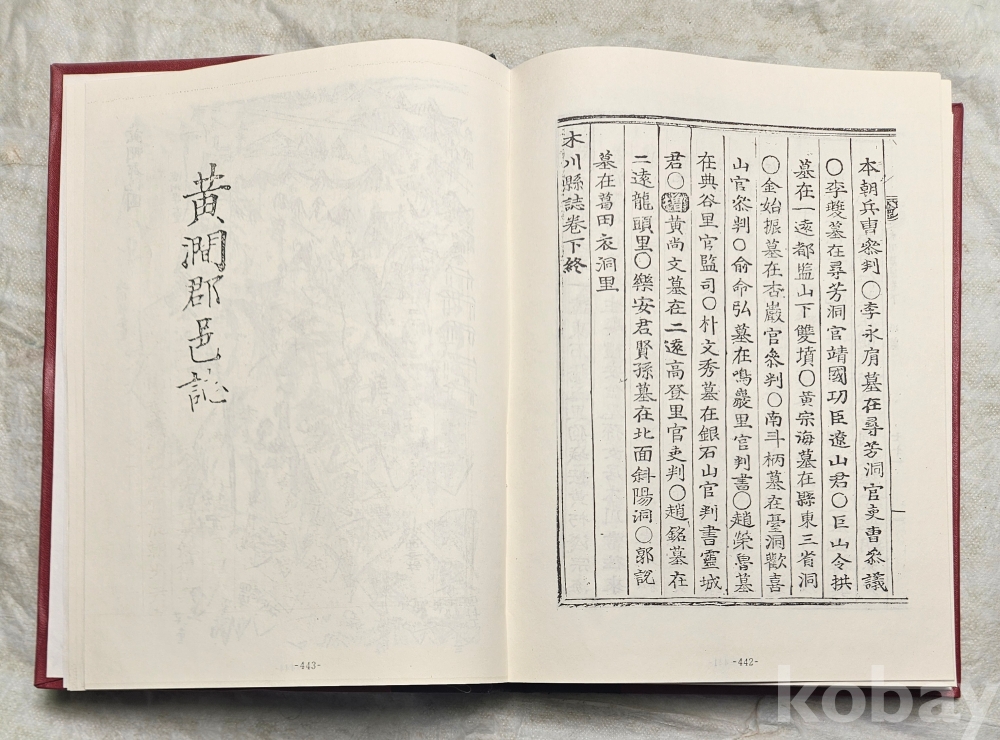 本朝兵曹叅判〇李永肩墓在尋芳洞官吏曹叅議
〇李夔墓在尋芳洞官靖國功臣遼山君〇巨山令拱
墓在一遠都監山下雙墳〇黃宗海墓在縣東三省洞
〇金始振墓在杏巖官叅判〇南斗柄墓在臺洞歡喜
山官叅判〇俞命弘墓在鳴巖里官判書〇趙榮魯墓
在典谷里官監司〇朴文秀墓在銀石山官判書靈城
君〇黃尚文墓在二遠高登里官吏判〇趙銘墓在
二遠龍頭里〇樂安君賢孫墓在北面斜陽洞〇郭說
墓在葛田衣洞里
木川縣誌卷下終
-442-
黃澗郡邑誌
-443-
kobay